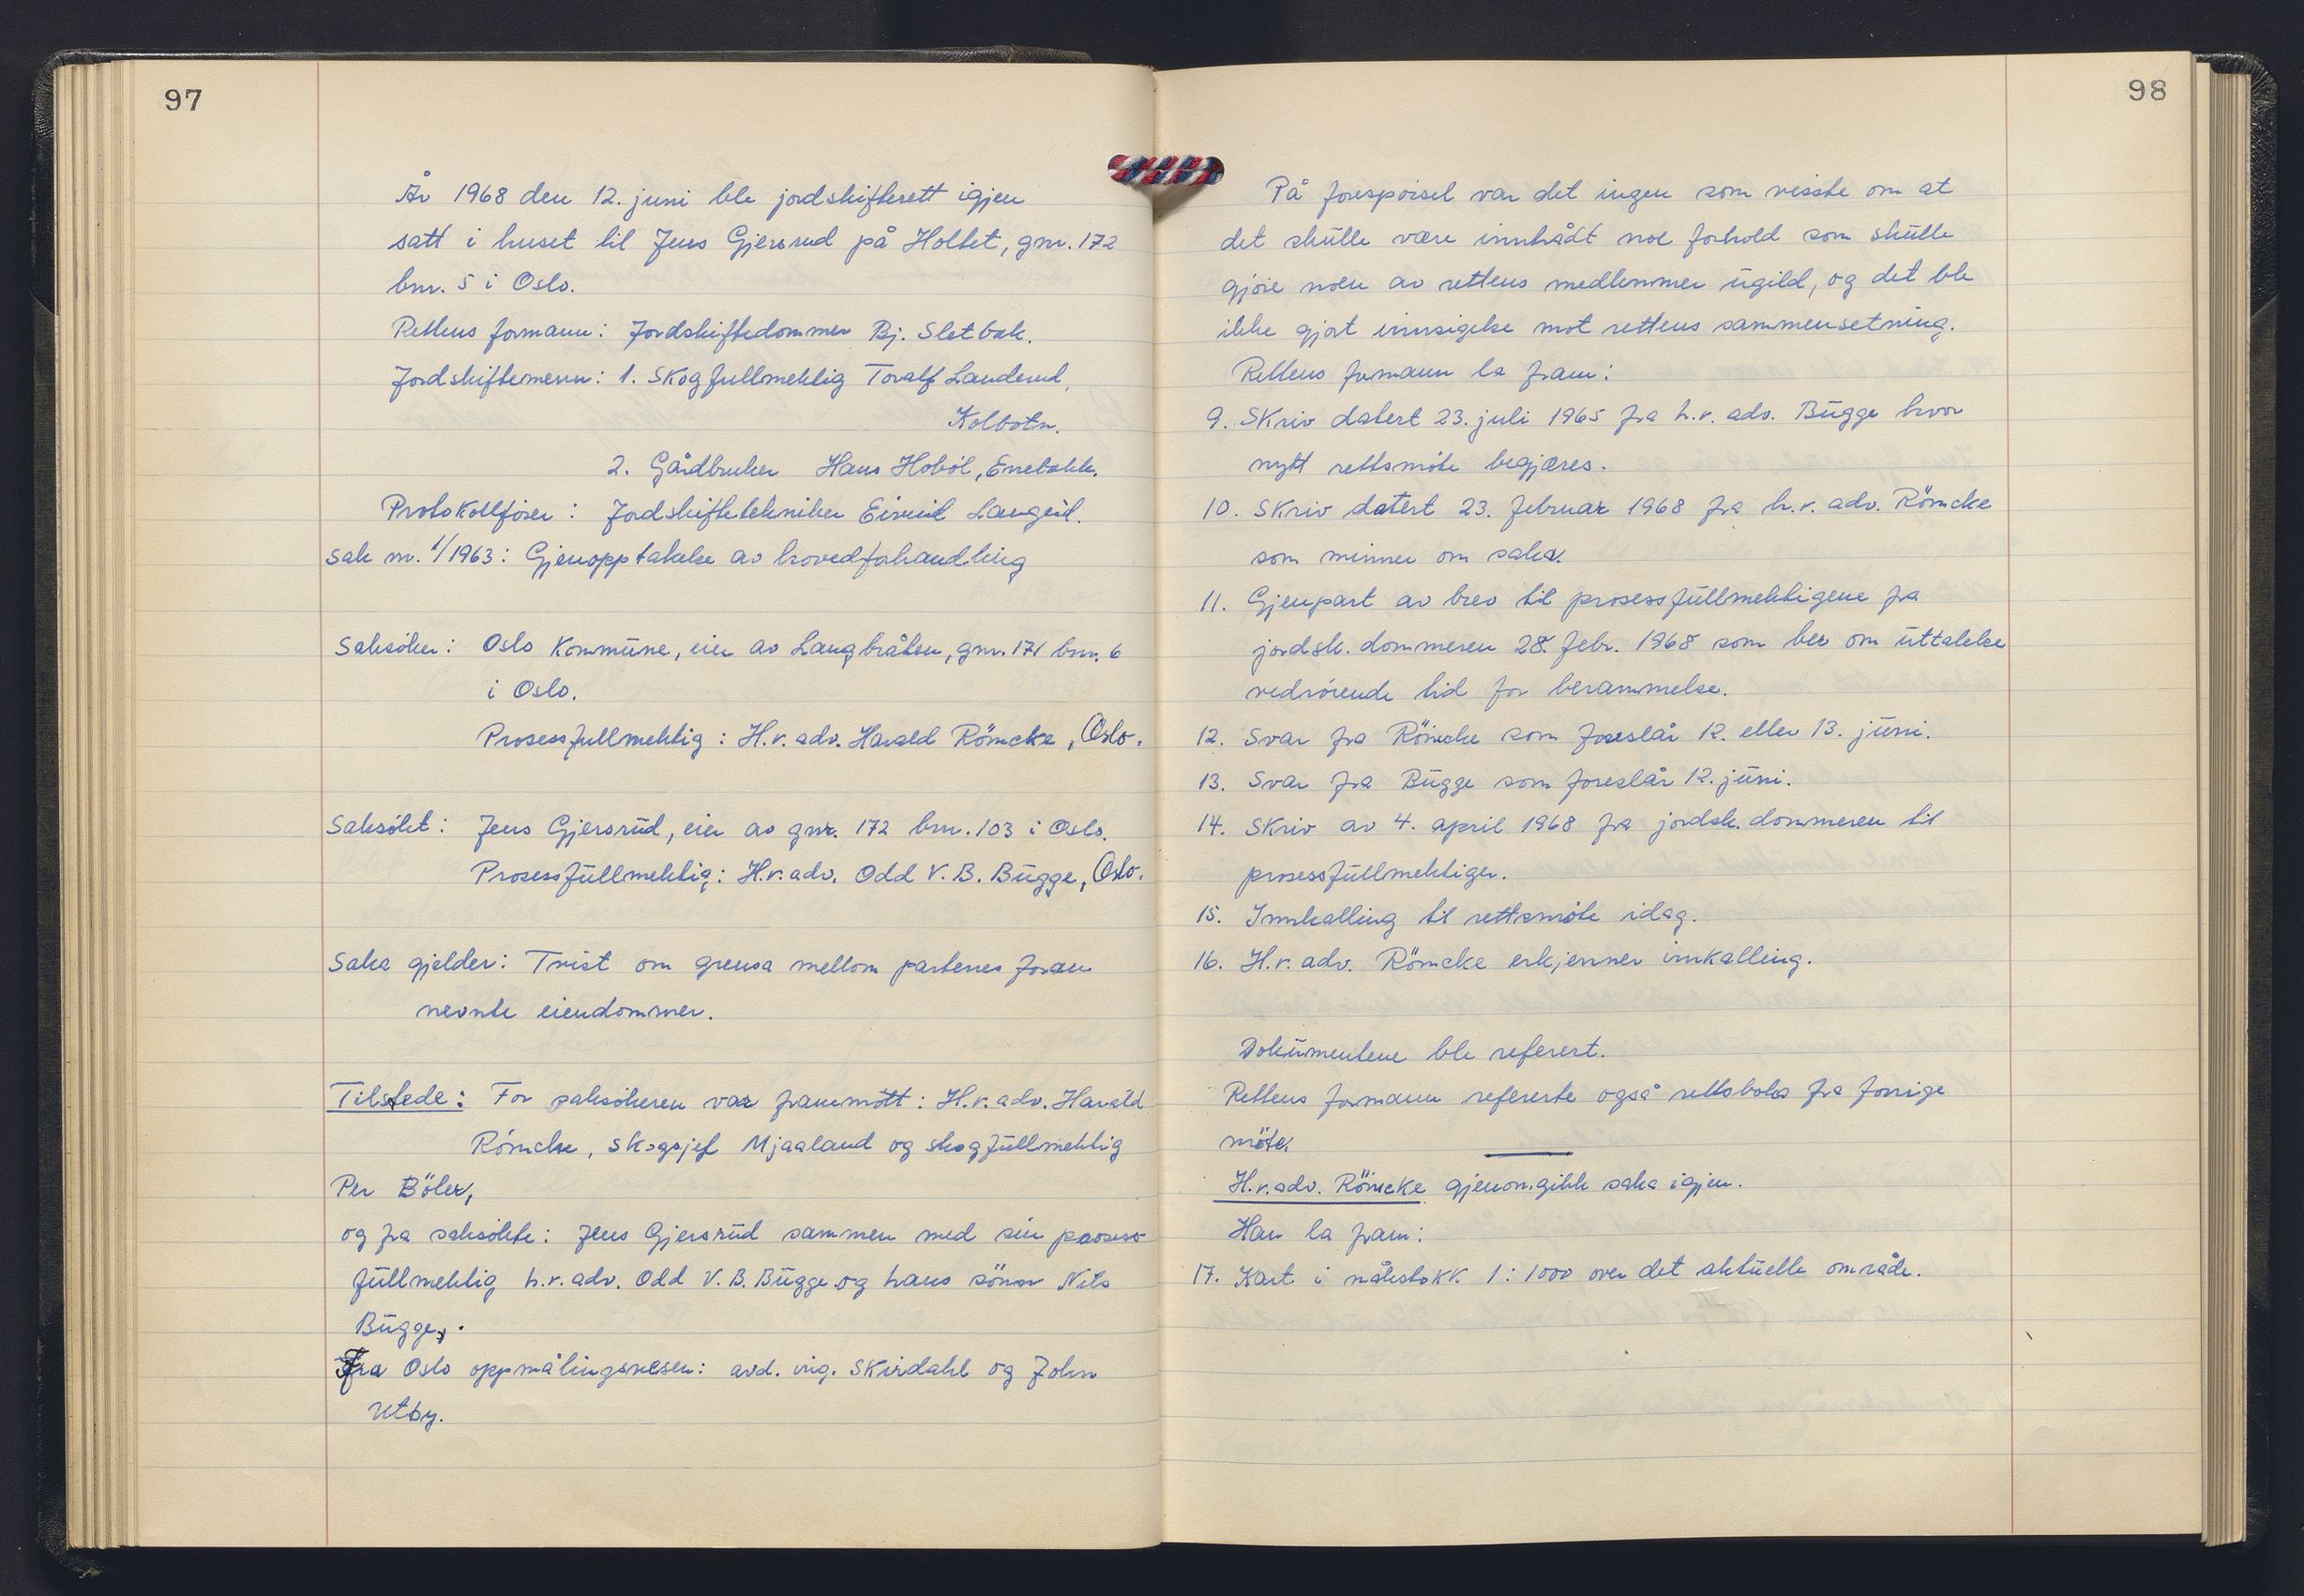 97
År 1968 den 12. juni ble jordskifterett igjen
satt i huset til Jens Gjersrud på Holtet, gnr. 172
bnr. 5 i Oslo.
Rettens formann: Jordskiftedommer Bj. Sletbak.
Jordskiftemenn: 1. Skogfullmektig Toralf Landerud,
Kolbotn.
2. Gårdbruker Hans Hoböl, Enebakk.
Protokollförer: Jordskiftetekniker Eivind Langeid.
Sak nr. 1/1963: Gjenopptakelse av hovedforhandling
Saksöker: Oslo Kommune, eier av Langbråten, gnr. 171 bnr. 6
i Oslo.
Prosessfullmektig: H.r. adv. Harald Römcke, Oslo.
Saksökt: Jens Gjersrud, eier av gnr. 172 bnr. 103 i Oslo.
Prosessfullmektig: H.r. adv. Odd V. B. Bugge, Oslo.
Saka gjelder: Tvist om grensa mellom partenes foran
nevnte eiendommer.
Tilstede: For saksökeren var frammött: H.r. adv. Harald
Römcke, skogsjef Mjaaland og skogfullmektig
Per Böler,
og fra saksökte: Jens Gjersrud sammen med sin prosess-
fullmektig h.r. adv. Odd V. B. Bugge og hans sönn Nils
Bugge.
Fra Oslo oppmålingsvesen: avd. ing. Skirdahl og John
Utby.
98
På forespörsel var det ingen som visste om at
det skulle være inntrådt noe forhold som skulle
gjöre noen av rettens medlemmer ugild, og det ble
ikke gjort innsigelse mot rettens sammensetning.
Rettens formann la fram:
9. Skriv datert 23. juli 1965 fra h.r. adv. Bugge hvor
nytt rettsmöte begjæres.
10. Skriv datert 23. februar 1968 fra h.r. adv. Römcke
som minner om saka.
11. Gjenpart av brev til prosessfullmektigene fra
jordsk. dommeren 28. febr. 1968 som ber om uttalelse
vedrörende tid for berammelse.
12. Svar fra Römcke som foreslår 12. eller 13. juni.
13. Svar fra Bugge som foreslår 12. juni.
14. Skriv av 4. april 1968 fra jordsk. dommeren til
prosessfullmektiger.
15. Innkalling til rettsmöte idag.
16. H.r. adv. Römcke erkjenner innkalling.
Dokumentene ble referert.
Rettens formann refererte også rettsboka fra forrige
möte.
H.r. adv. Römcke gjenomgikk saka igjen.
Han la fram:
17. Kart i målestokk 1:1000 over det aktuelle område.